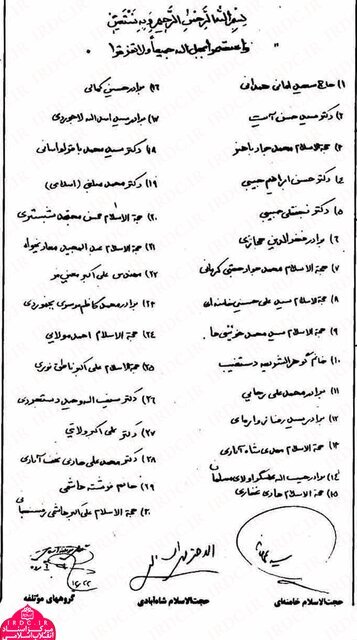 بسم الله الرحمن الرحیم و به نستعین
واعتصموا بحبل الله جمیعاً ولا تفرقوا
۱) حاج سعید امانی همدانی
۲) دکتر سید حسن آیت
۳) حجة الاسلام محمد جواد باهنر
۴) دکتر حسن ابراهیم حبیبی
۵) دکتر نجفقلی حبیبی
۶) برادر فخرالدین حجازی
۷) حجة الاسلام محمد جواد حجتی کرمانی
۸) حجة الاسلام سید علی حسینی خامنه‌ای
۹) حجة الاسلام سید محمد خوئینی‌ها
۱۰) خانم گوهرالشریعه دستغیب
۱۱) برادر محمد علی رجائی
۱۲) برادر سید رضا زواره‌ای
۱۳) حجة الاسلام مهدی شاه آبادی
۱۴) برادر حبیب الله عسگراولادی مسلمان
۱۵) حجة الاسلام هادی غفاری
۱۶) برادر حسین کمالی
۱۷) برادر سید اسدالله لاجوردی
۱۸) دکتر سید محمد باقر لواسانی
۱۹) دکتر محمد (اسلامی)
۲۰) حجة الاسلام محسن مجتهد شبستری
۲۱) حجة الاسلام عبدالمجید معادیخواه
۲۲) مهندس علی اکبر معین‌فر
۲۳) برادر محمد کاظم موسوی بجنوردی
۲۴) حجة الاسلام احمد مولائی
۲۵) حجة الاسلام علی اکبر ناطق نوری
۲۶) دکتر سیف الله وحید دستجردی
۲۷) دکتر علی اکبر ولایتی
۲۸) دکتر محمد علی هادی نجف‌آبادی
۲۹) خانم فرشته هاشمی
۳۰) حجة الاسلام علی اکبر هاشمی رفسنجانی
حجت‌الاسلام خامنه‌ای
حجت‌الاسلام شاه‌آبادی
گروههای مؤتلفه
IRDC.IR
مرکز اسناد
انقلاب اسلامی